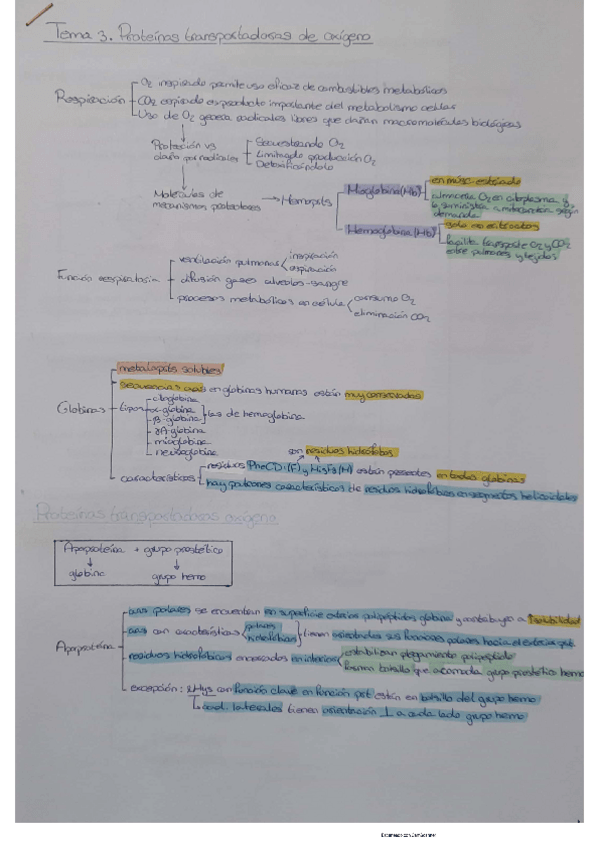 Tema 3. Proteínas transportadoras de oxígeno
Respiración
O2 inspirado permite uso eficaz de combustibles metabólicos
CO2 espirado es producto importante del metabolismo celular
Uso de O2 genera radicales libres que dañan macromoléculas biológicas
Protección vs
daño por radicales
Secuestrando O2
Limitando producción O2
Detoxificándolo
Moléculas de
mecanismos protectores
→ Hemoprots
Mioglobina (Mb)
en músc. estriado
almacena O2 en citoplasma y
lo suministra a mitocondrias según
demanda
Hemoglobina (Hb)
solo en eritrocitos
facilita transporte O2 y CO2
entre pulmones y tejidos
Función respiratoria
ventilación pulmonar
inspiración
espiración
difusión gases alveolos-sangre
procesos metabólicos en célula
consumo O2
eliminación CO2
Globinas
metaloprots solubles
secuencias aas en globinas humanas están muy conservadas
tipos
citoglobina
α-globina
β-globina
las de hemoglobina
γA-globina
mioglobina
neuroglobina
son residuos hidrófobos
características
residuos PheCD1(F) y HisF8(H) están presentes en todas globinas
hay patrones característicos de residuos hidrófobos en segmentos helicoidales
Proteínas transportadoras oxígeno
Apoproteína + grupo prostético
globina
grupo hemo
Apoproteína
aas polares se encuentran en superficie exterior polipéptidos globina y contribuyen a ↑solubilidad
aas con características
polares
hidrofóbicas
tienen orientadas sus funciones polares hacia el exterior prot.
residuos hidrofóbicos enterrados en interior
estabilizan plegamiento polipéptido
forman bolsillo que acomoda grupo prostético hemo
excepción: 2 Hys con función clave en función prot están en bolsillo del grupo hemo
cad. laterales tienen orientación ⊥ a cada lado grupo hemo
Escaneado con CamScanner